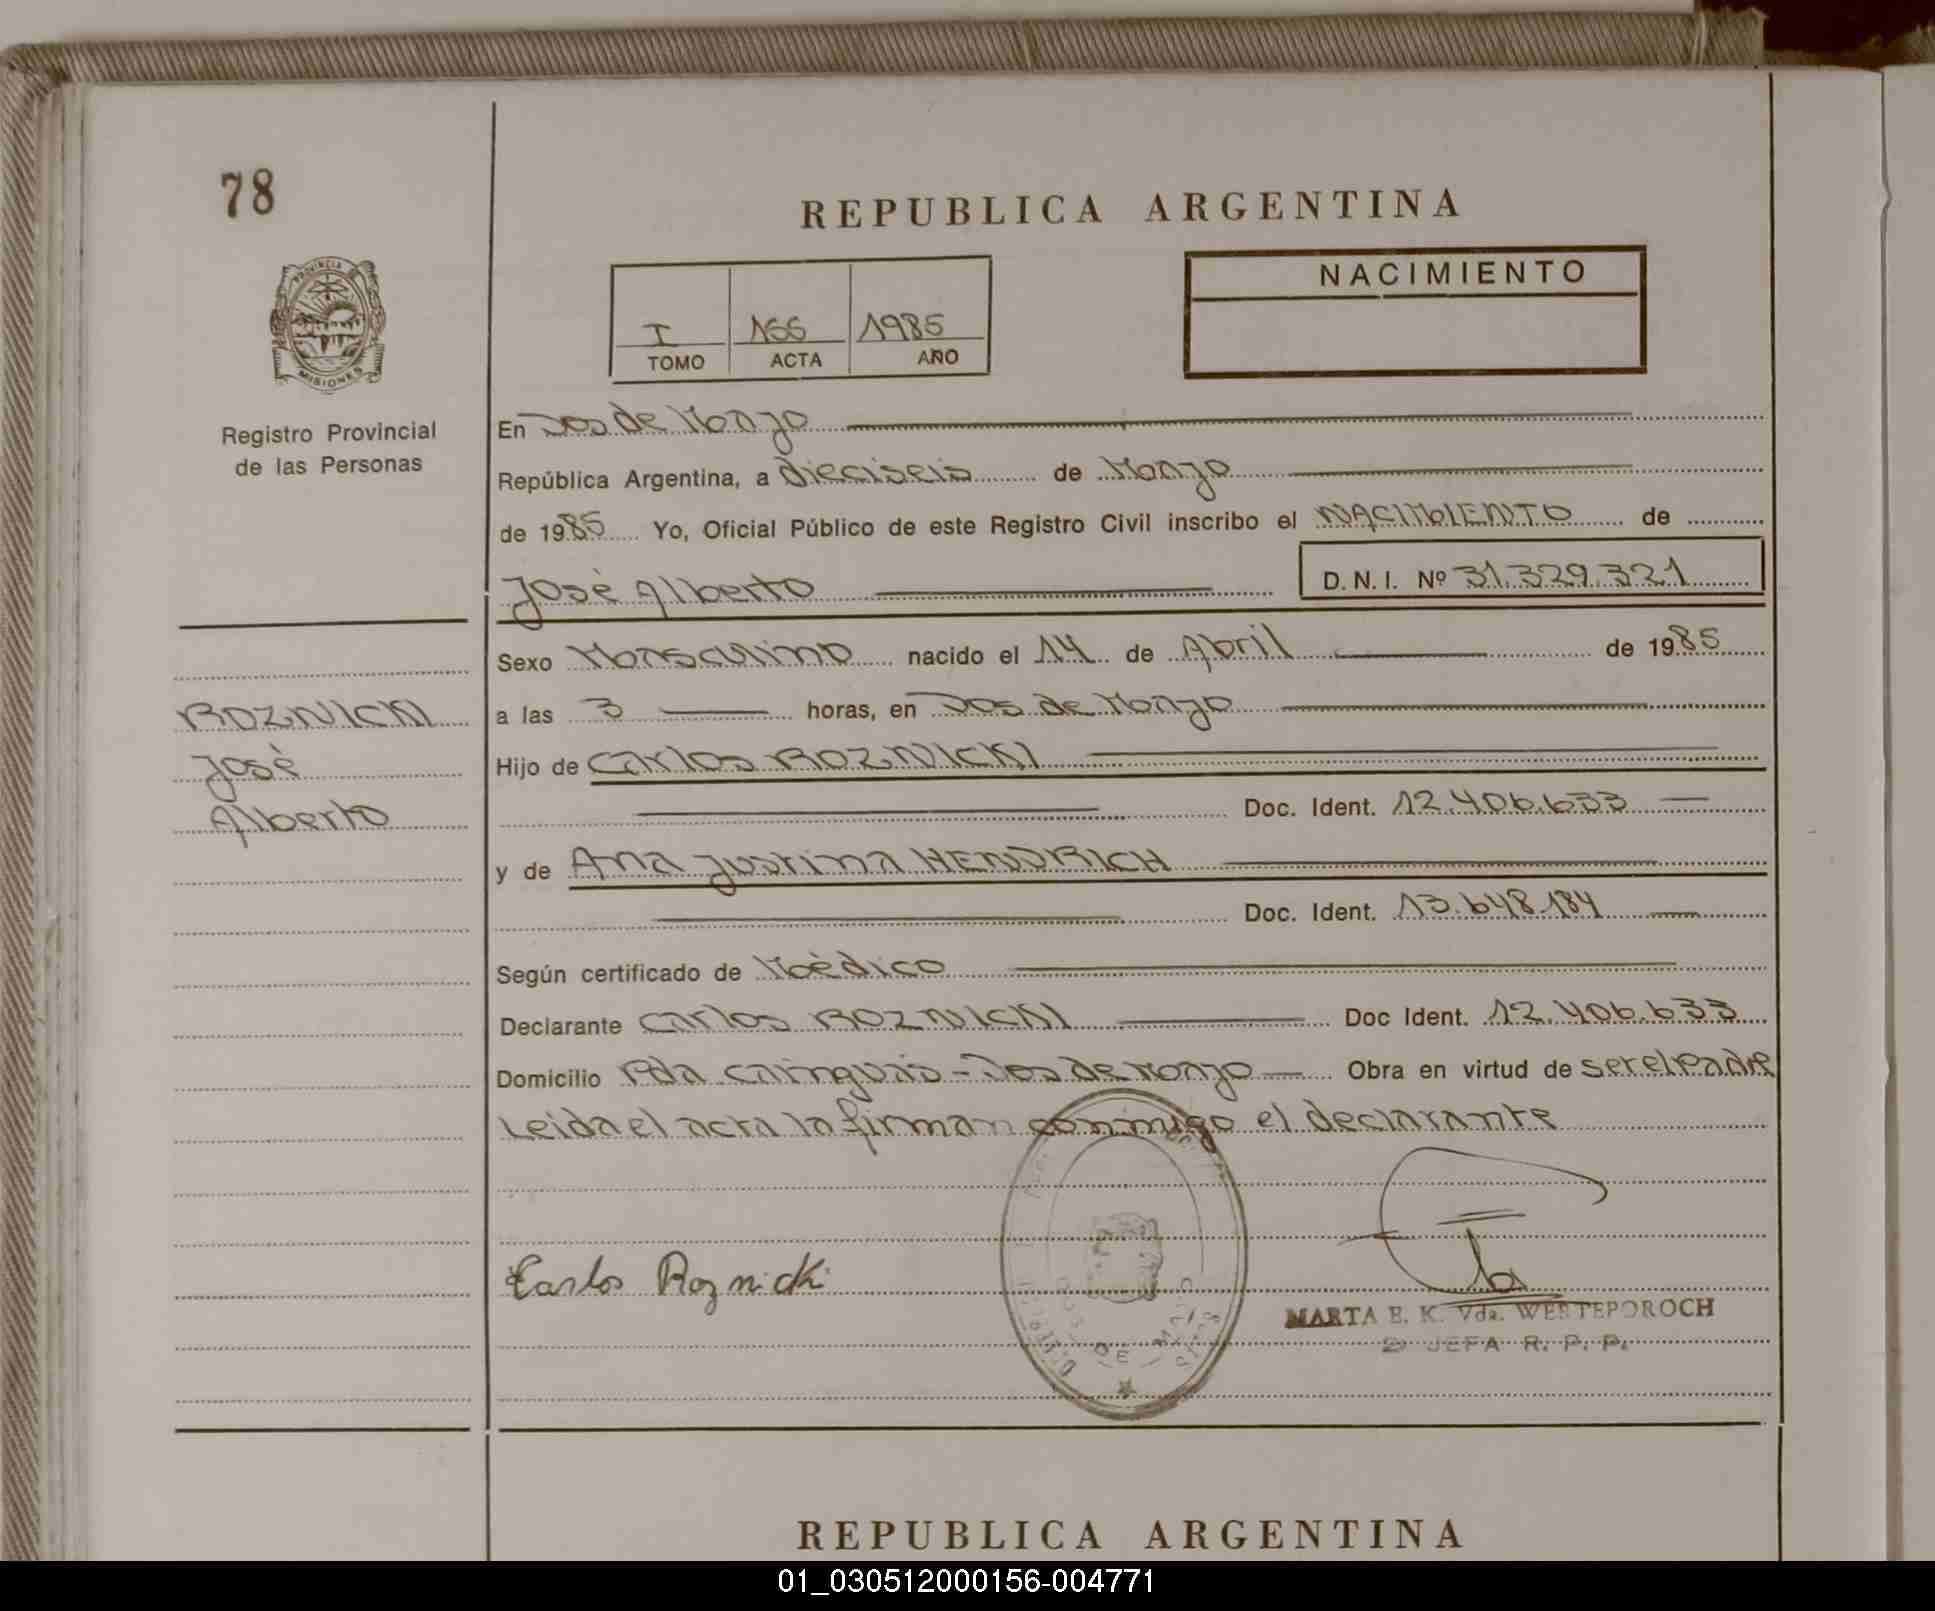 78
REPUBLICA ARGENTINA
NACIMIENTO
I 155 1985
TOMO ACTA AÑO
PROVINCIA DE MISIONES
Registro Provincial
de las Personas
En Dos de Mayo
República Argentina, a dieciseis de Mayo
de 1985 Yo, Oficial Público de este Registro Civil inscribo el NACIMIENTO de
José Alberto D.N.I. Nº 31.329.321
ROZNICKI
José
Alberto
Sexo Masculino nacido el 14 de Abril de 1985
a las 3 horas, en Dos de Mayo
Hijo de Carlos ROZNICKI
Doc. Ident. 12.406.633
y de Ana Justina HENDRICH
Doc. Ident. 13.648.184
Según certificado de Médico
Declarante Carlos ROZNICKI Doc Ident. 12.406.633
Domicilio Pda Cainguás - Dos de Mayo Obra en virtud de ser el Padre
Leida el acta la firman conmigo el declarante
Carlos Roznicki
MARTA E. K. Vda. WERTEPOROCH
2º JEFA R. P. P.
REPUBLICA ARGENTINA
01_030512000156-004771